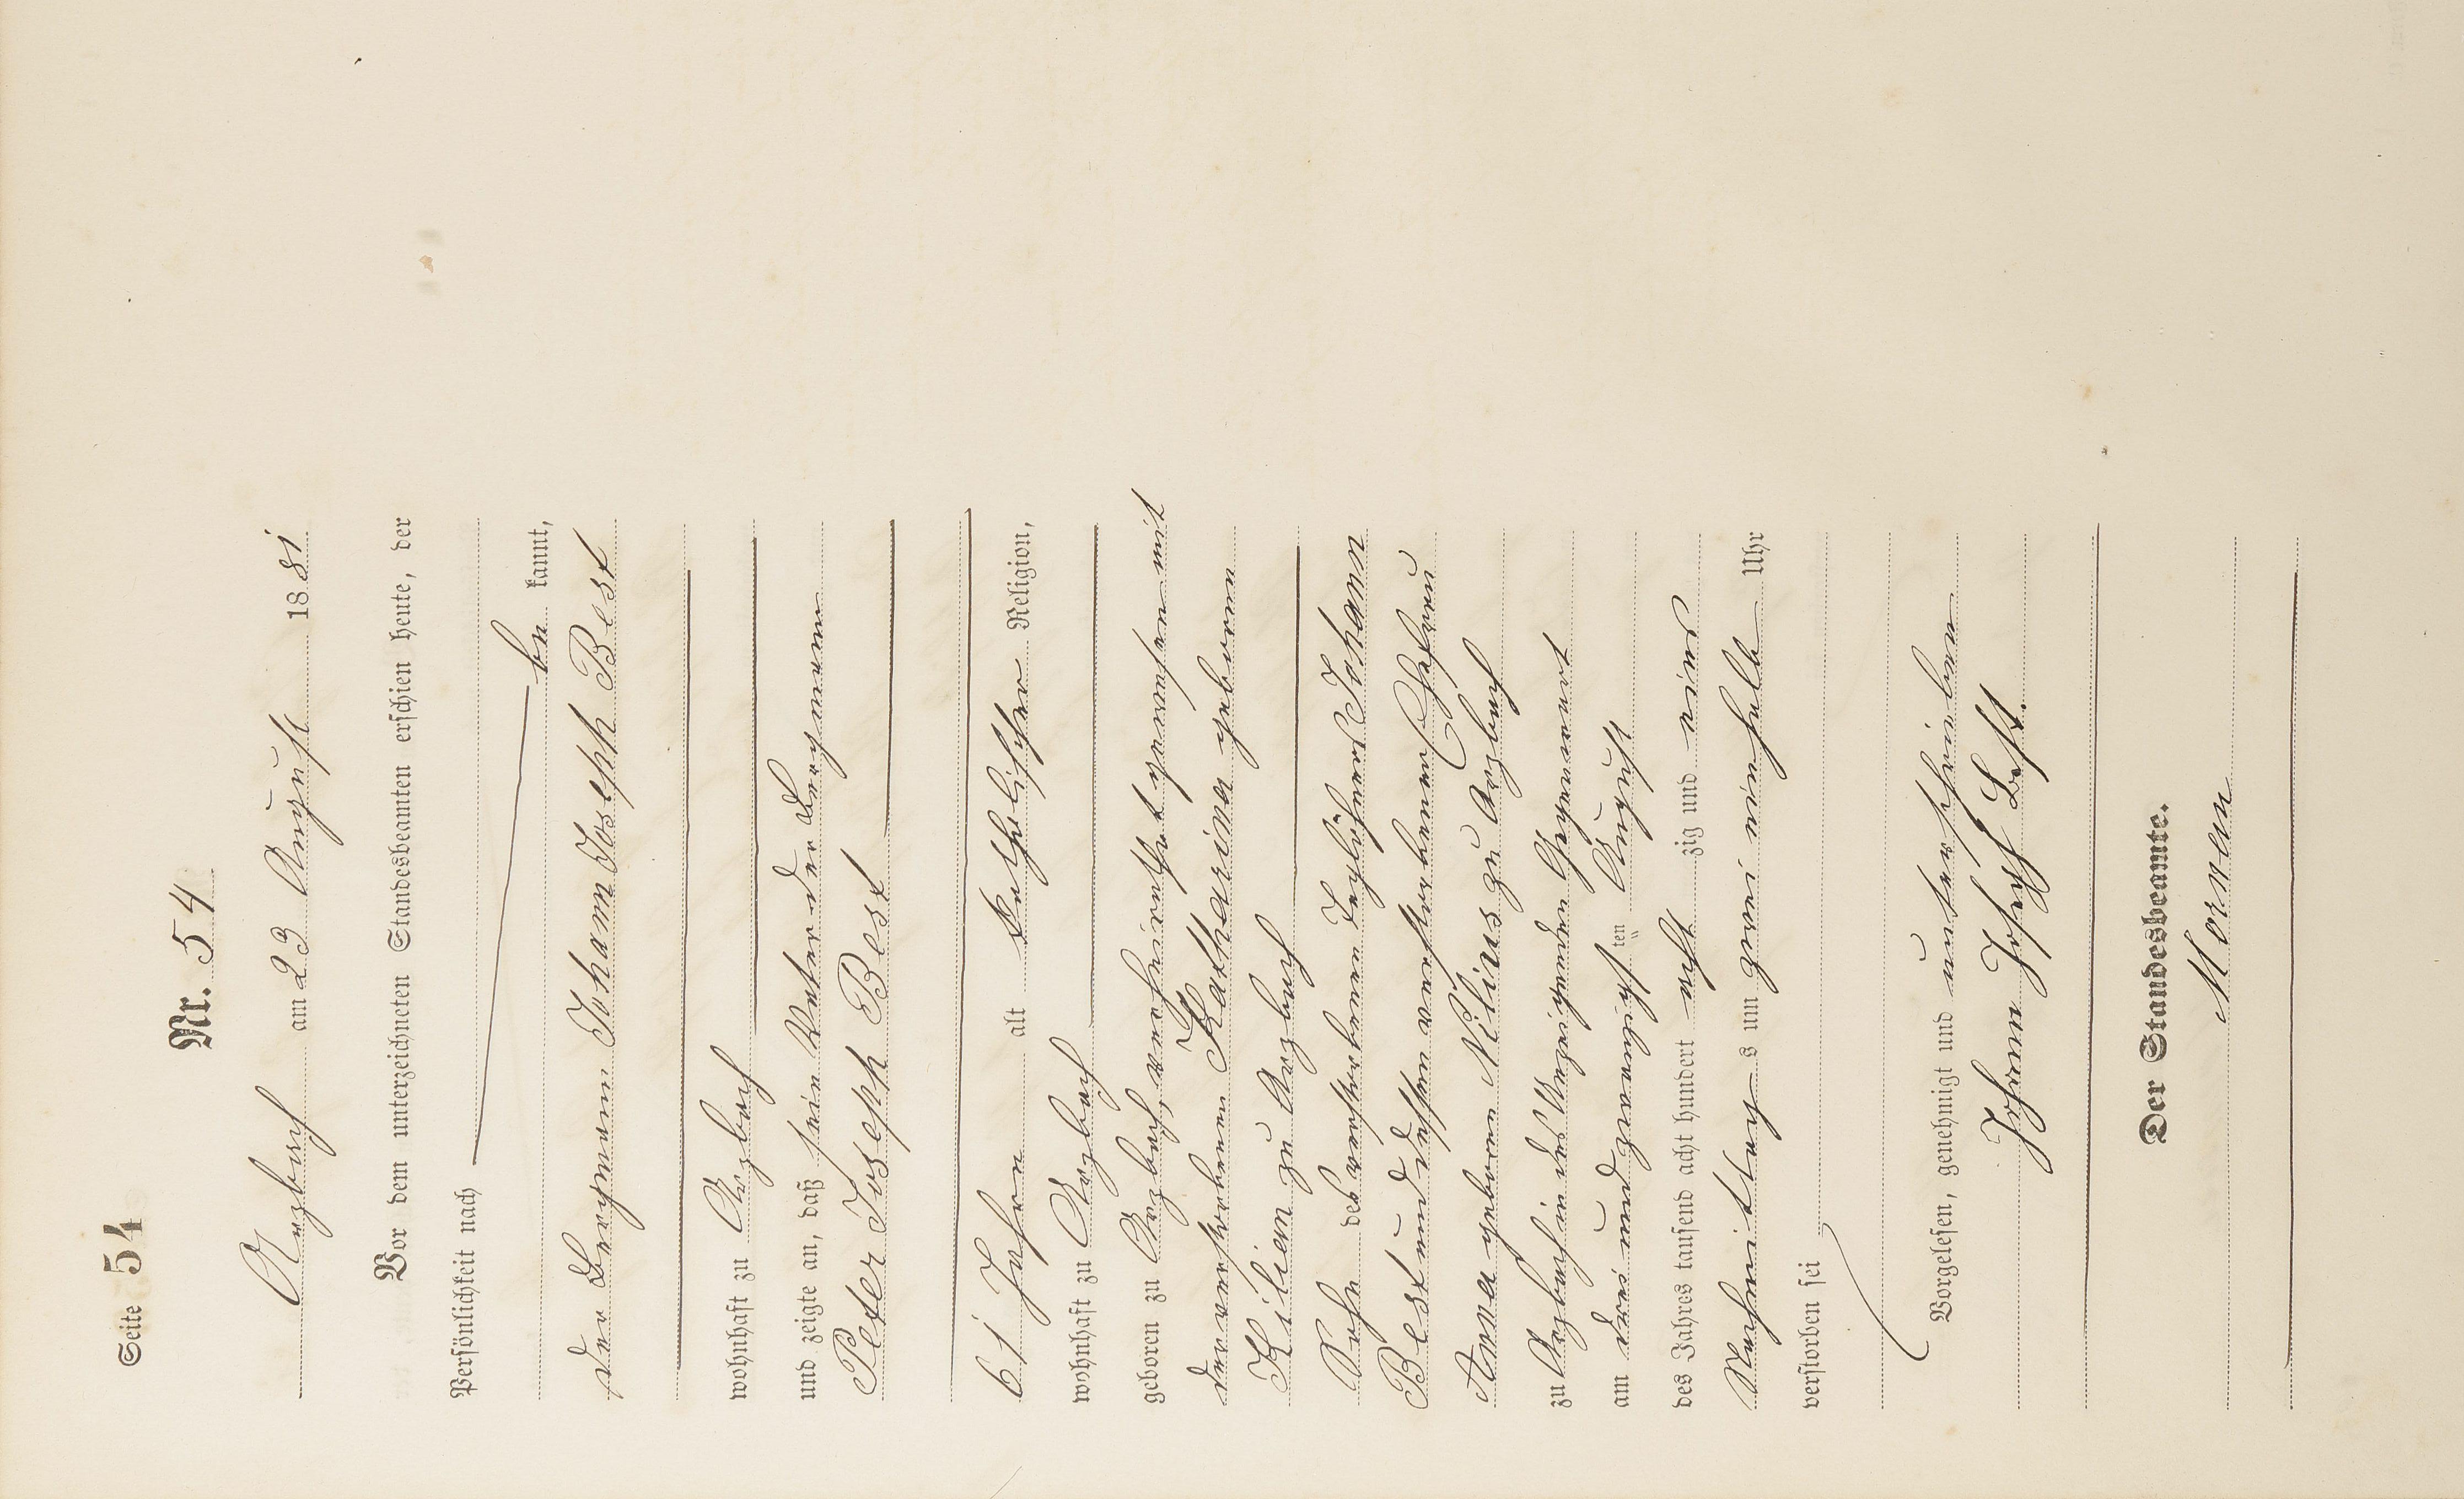 Seite 54
Nr. 54
Arzbach am 23 August 1881
Vor dem unterzeichneten Standesbeamten erschien heute, der
Persönlichkeit nach
be kannt,
der Bergmann Johann Joseph Best
wohnhaft zu Arzbach
und zeigte an, daß sein Vater der Bergmann
Peter Joseph Best
61 Jahre alt katholischer Religion,
wohnhaft zu Arzbach
geboren zu Arzbach, verheirathet gewesen mit
der verstorbenen Katharina geborene
Kilian zu Arzbach
Sohn des verstorbenen Taglöhners Johann
Best und dessen verstorbener Ehefrau
Anna geborene Nilius zu Arzbach
zu Arzbach in des Anzeigenden Gegenwart
am drei und zwanzigst ten August
des Jahres tausend acht hundert acht zig und eins
Nachmittag s um zwei einhalb Uhr
verstorben sei
Vorgelesen, genehmigt und unterschrieben
Johann Joseph Best.
Der Standesbeamte.